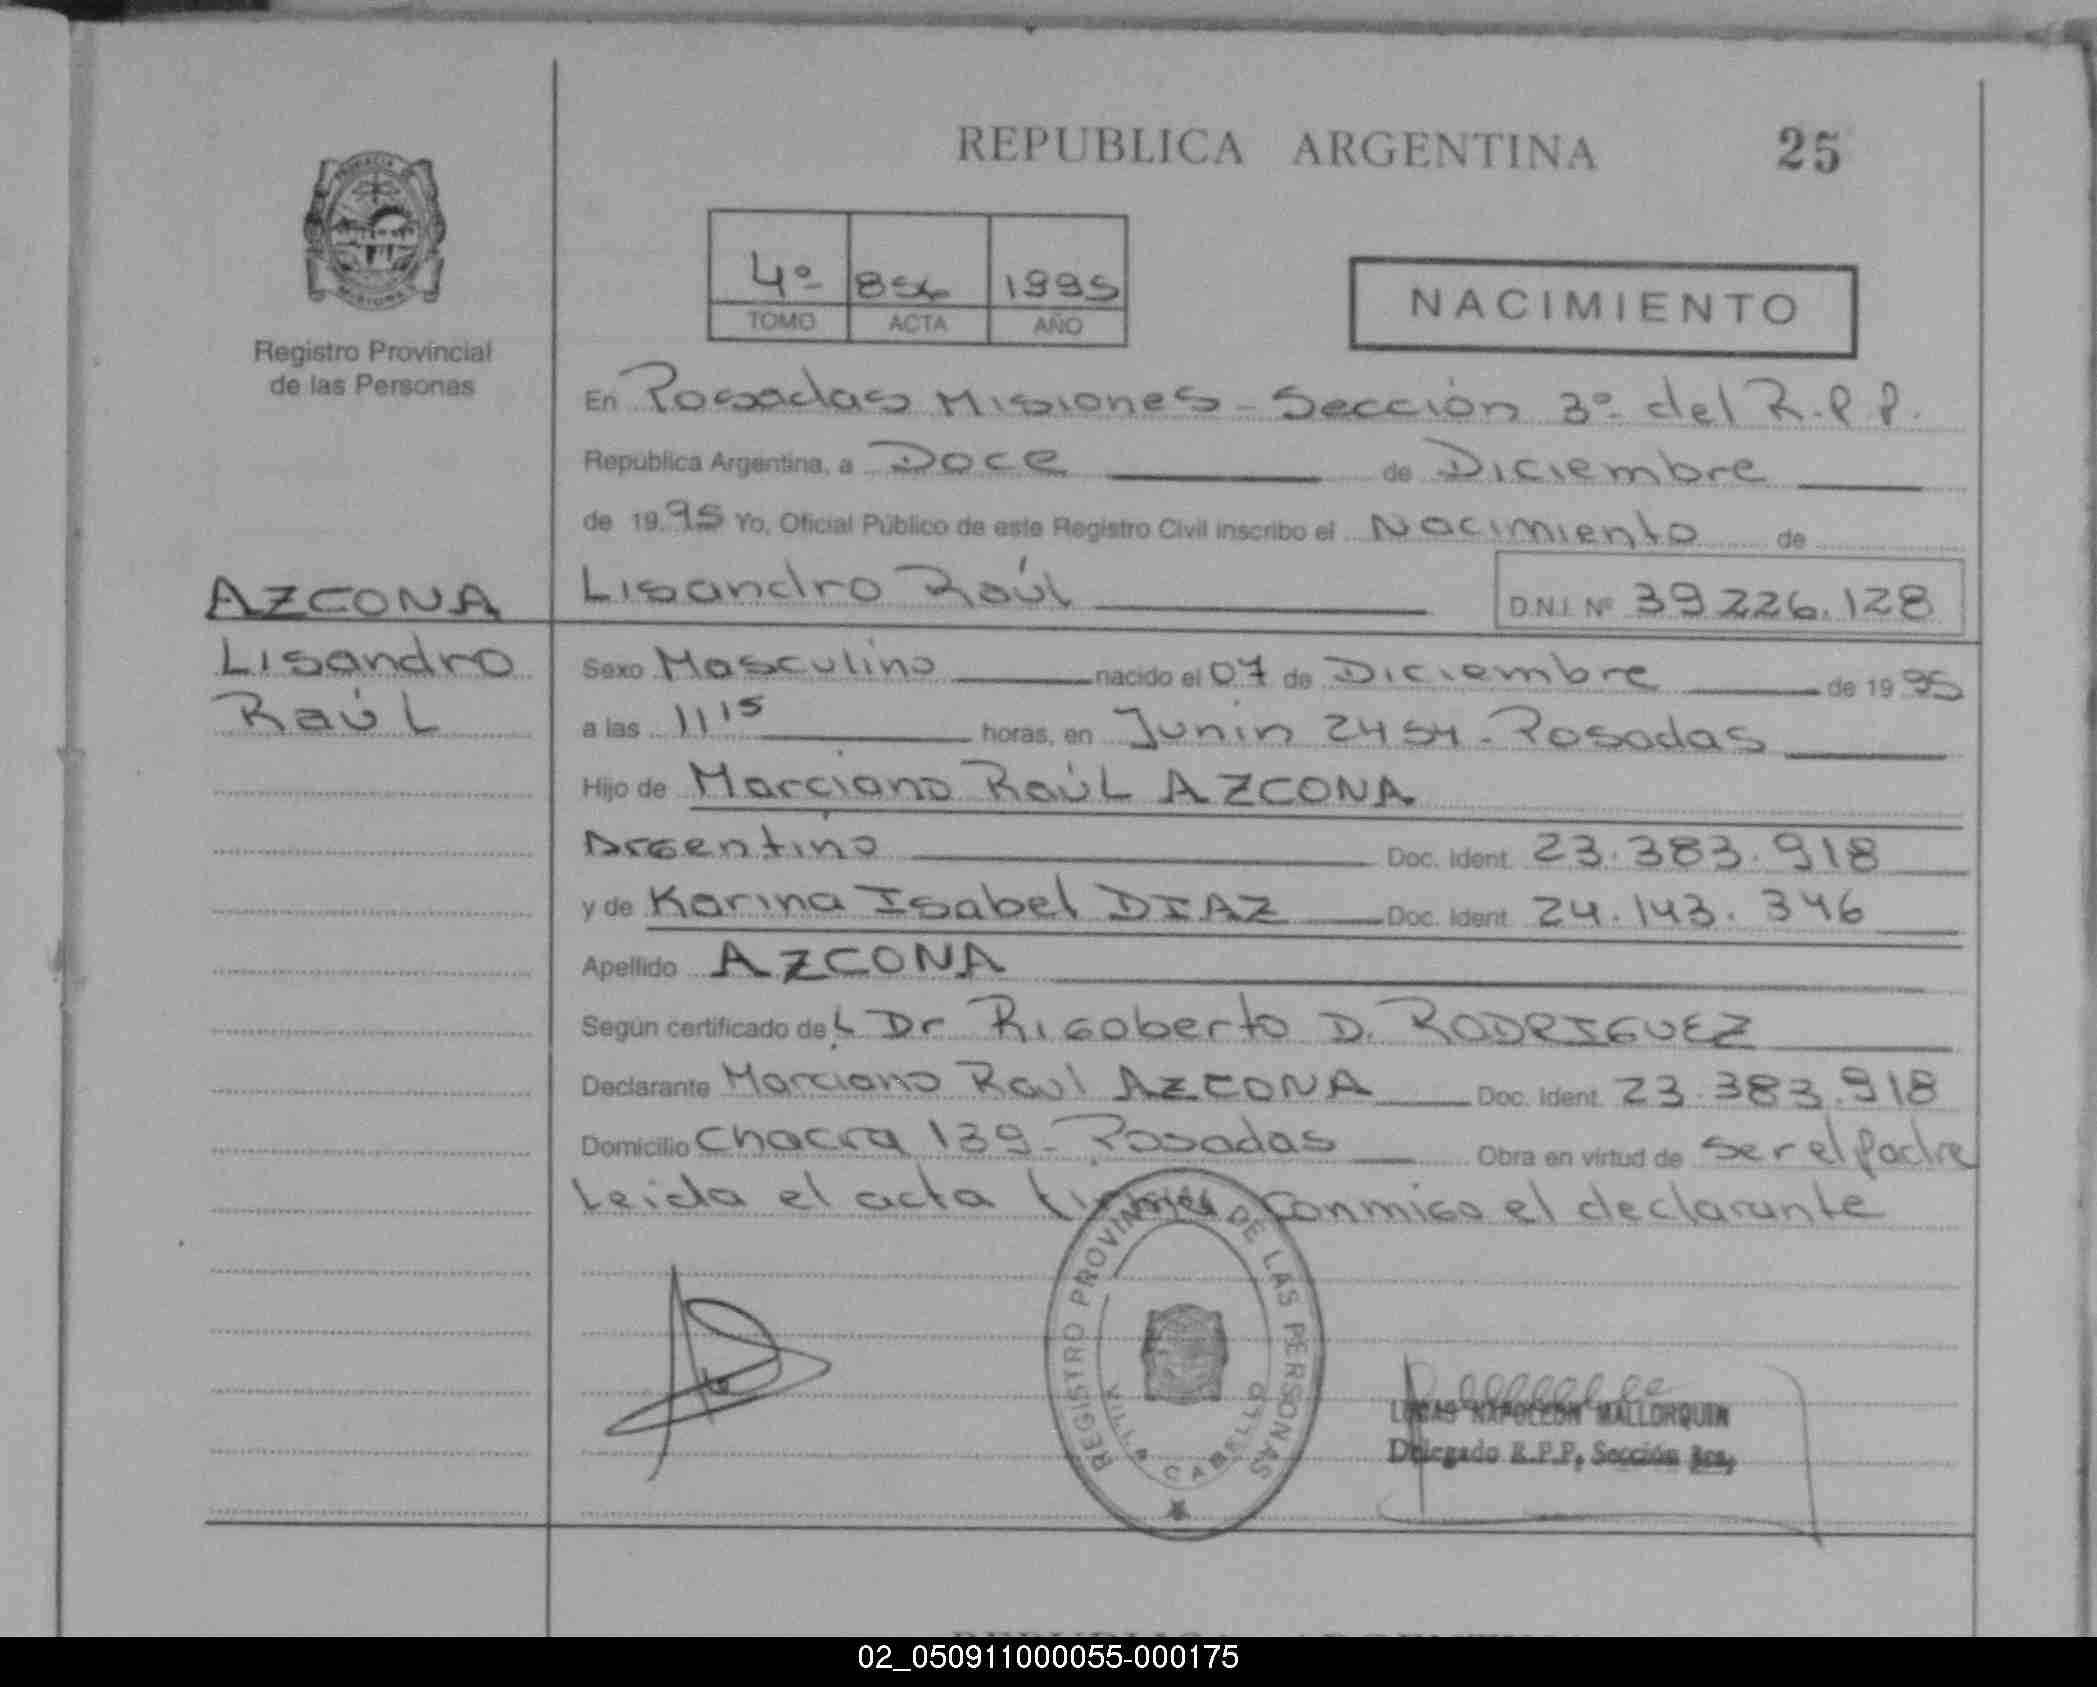 REPUBLICA ARGENTINA 25
Registro Provincial
de las Personas
4º 856 1995
TOMO ACTA AÑO
NACIMIENTO
En Posadas Misiones - Sección 3º del R.P.P.
Republica Argentina, a Doce de Diciembre
de 1995 Yo, Oficial Público de este Registro Civil inscribo el Nacimiento de
AZCONA
Lisandro
Raúl
Lisandro Raúl D.N.I. Nº 39.226.128
Sexo Masculino nacido el 07 de Diciembre de 1995
a las 11 15 horas, en Junin 2454 - Posadas
Hijo de Marciano Raúl AZCONA
Argentino Doc. Ident. 23.383.918
y de Karina Isabel DIAZ Doc. Ident. 24.143.346
Apellido AZCONA
Según certificado del Dr Rigoberto D. RODRIGUEZ
Declarante Marciano Raul AZCONA Doc. Ident. 23.383.918
Domicilio Chacra 139 - Posadas Obra en virtud de ser el padre
Leida el acta conmigo el declarante
REGISTRO PROVINCIAL DE LAS PERSONAS
VILLA CABELLO
LUCAS NAPOLEON MALLORQUIN
Delegado R.P.P. Sección 3ra.
02_050911000055-000175